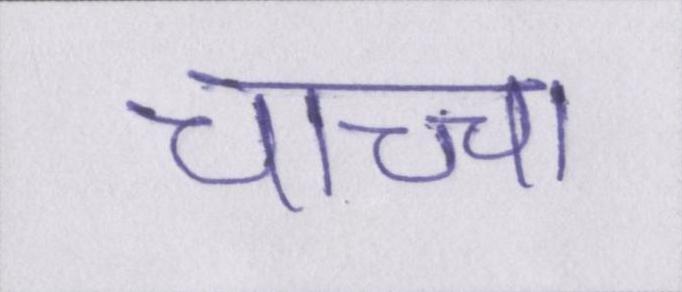 चाच्चा